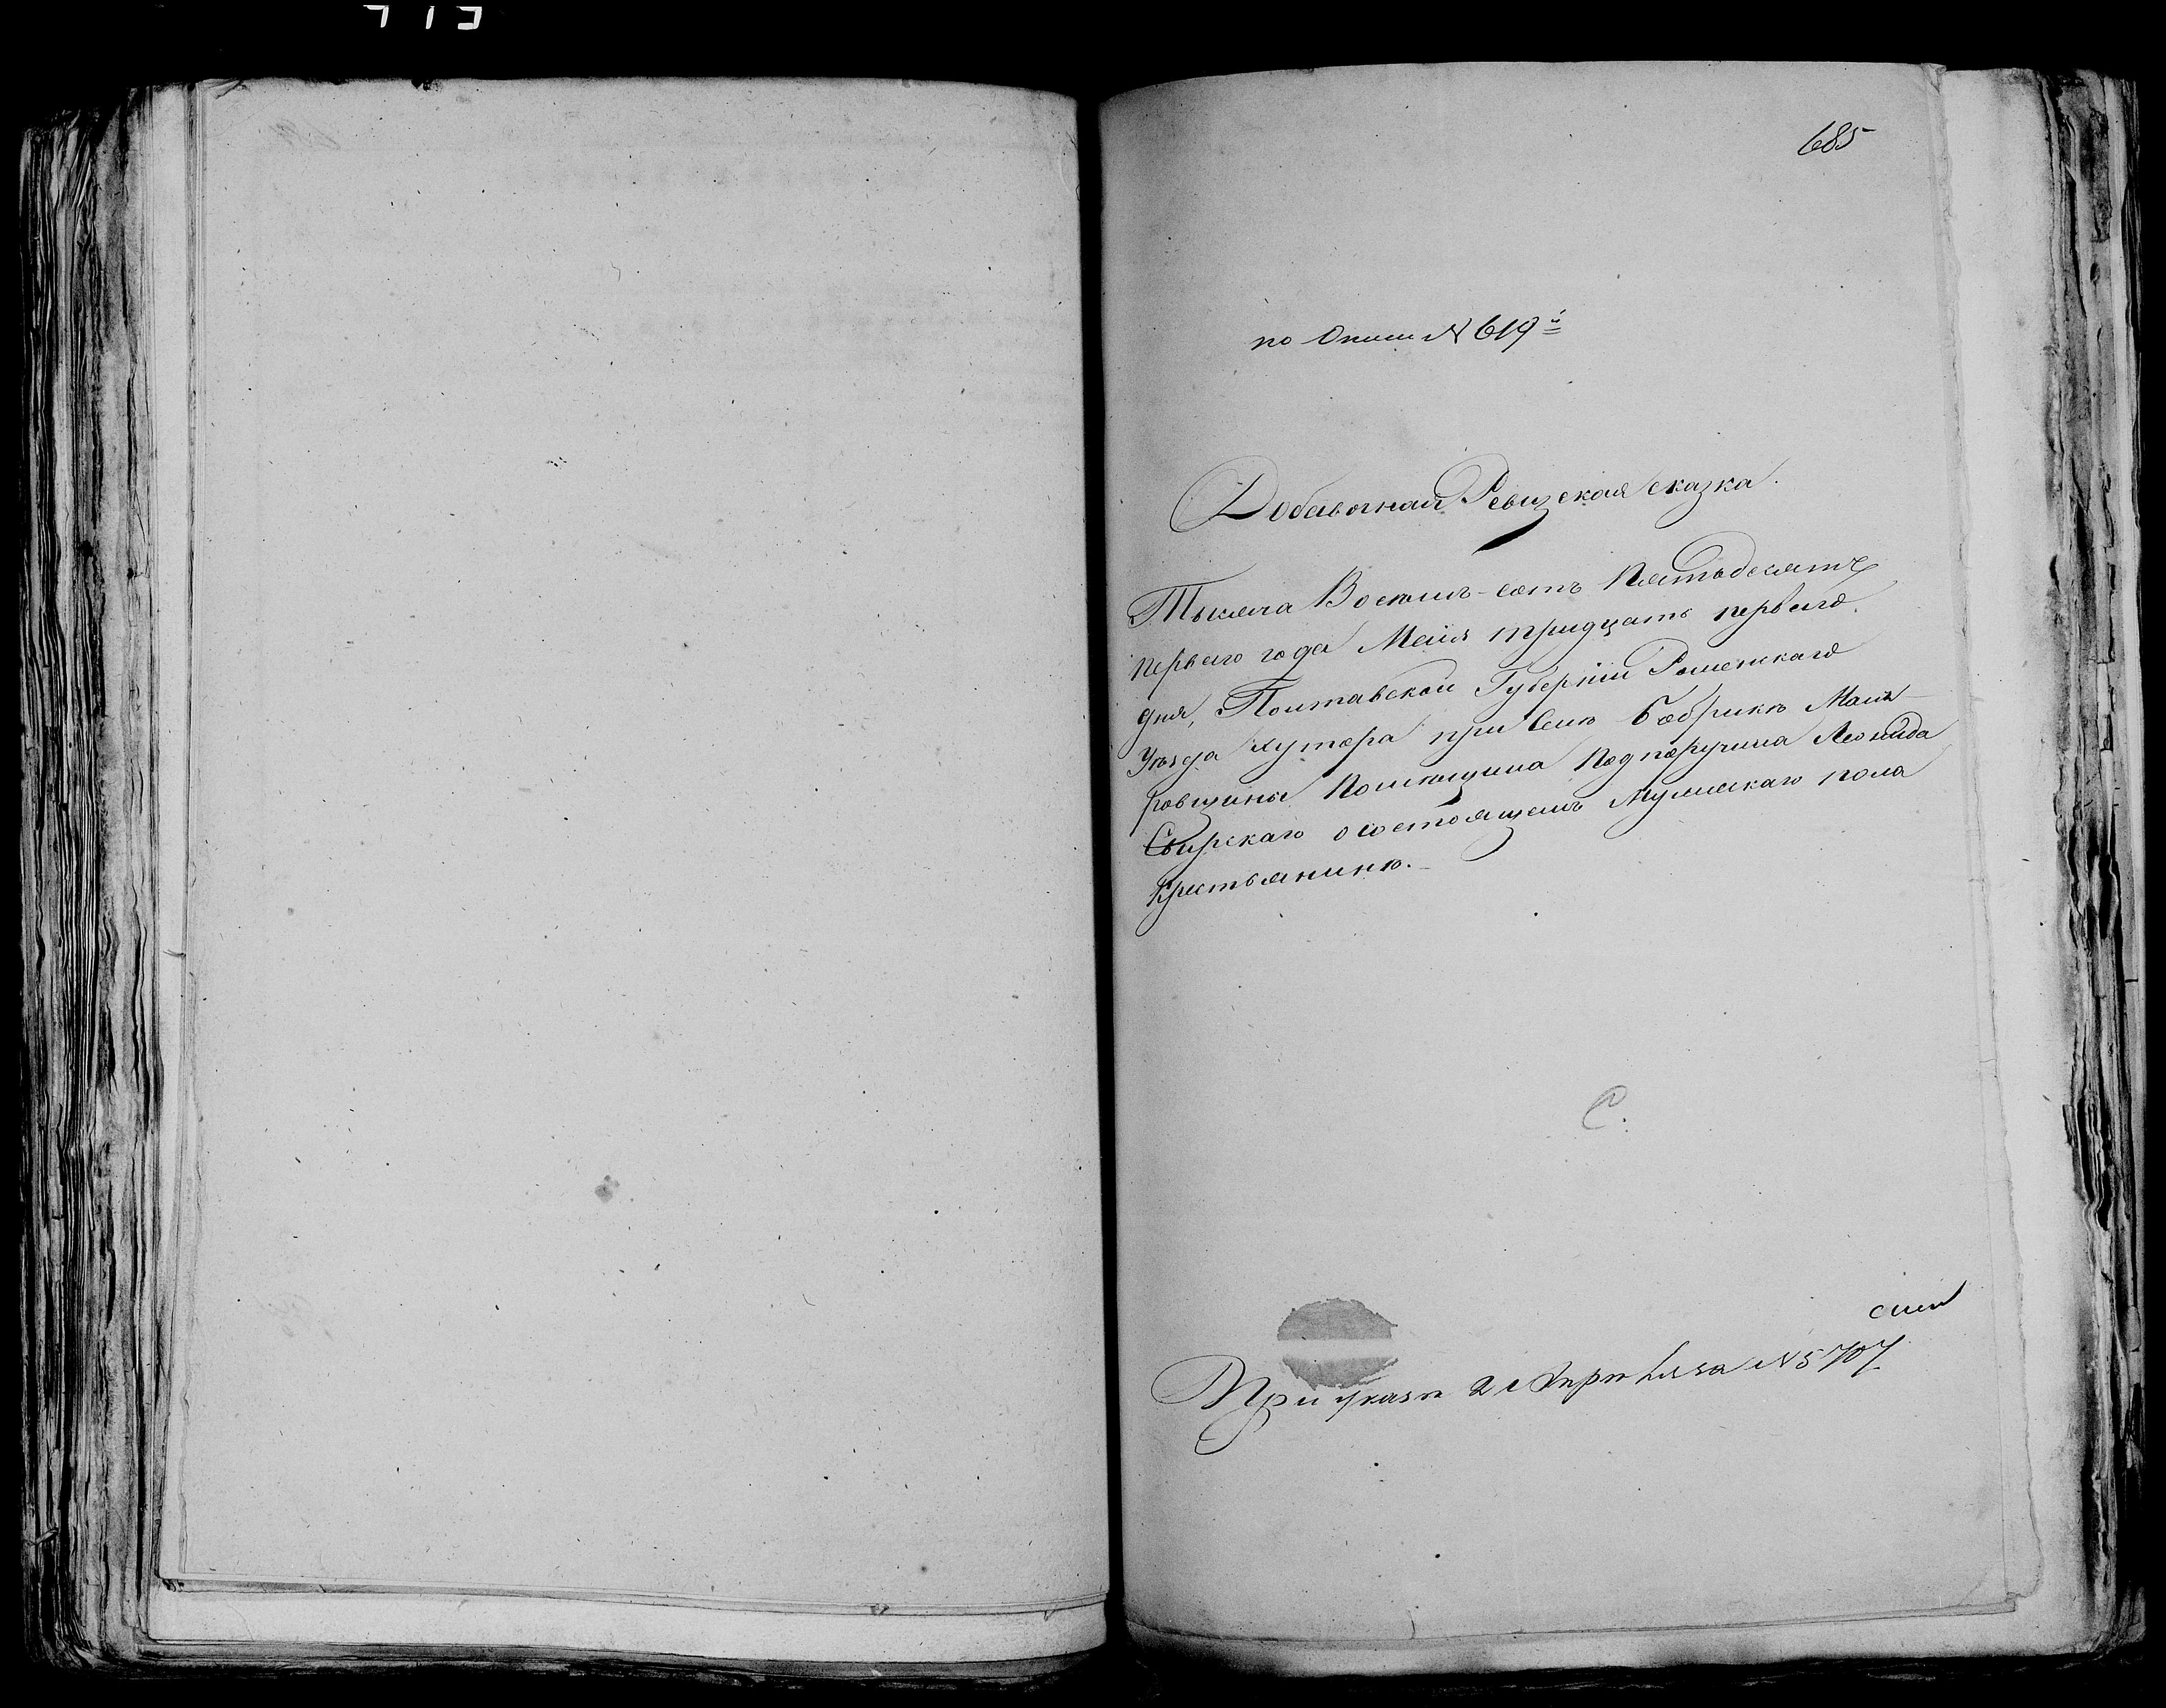 685
по Описи № 619й
Добавочная Ревизская сказка.
Тысяча Восемь-сотъ Пятьдесятъ
первого года Маія тридцать первого
дня, Полтавской Губерніи Роменскаго
Уезда Хутора при Селе Бобрике
ровщины Помещика Подпоручика Леонида
Свирскаго о состоящемъ Мужескаго пола
Крестьянине.
С.
При указе 2 Апреля № 5707